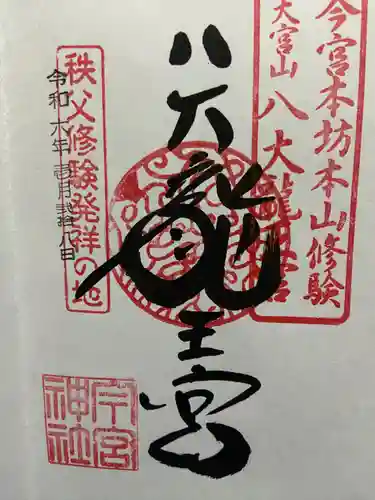 今宮本坊本山修験
大宮山八大龍王宮
八大龍王宮
秩父修験発祥の地
令和六年壱月弐拾八日
今宮神社